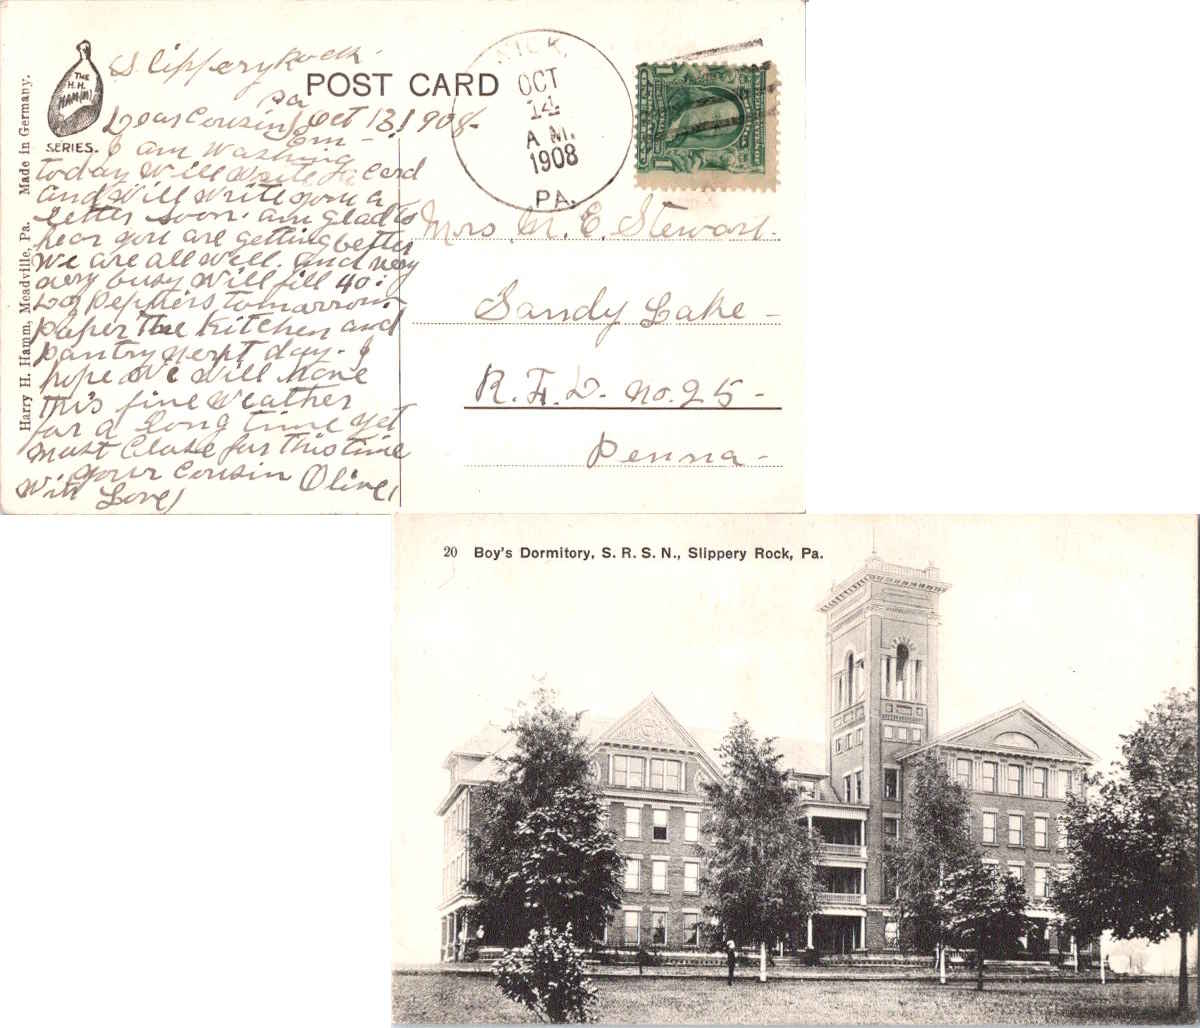 Slippery Rock
POST CARD
Pa
Dear Cousin, Oct 13, 1908.
Em -
I am washing
today Will Write a Card
and Will Write you a
letter soon. am glad to
hear you are getting better
We are all well. and very
very busy Will fill 40
doz peppers tomarrow
paper The Kitchen and
pantry next day. I
hope We Will have
This fine Weather
for a long time yet
must Close for This time
your Cousin Olive,
With Love,
THE
H.H.
HAM(M)
SERIES.
Harry H. Hamm, Meadville, Pa. Made in Germany.
NICK,
OCT
14
A M.
1908
PA.
1 1
Mrs M. E. Stewart.
Sandy Lake -
R. F. D. no. 25 -
Penna -
20 Boy's Dormitory, S. R. S. N., Slippery Rock, Pa.